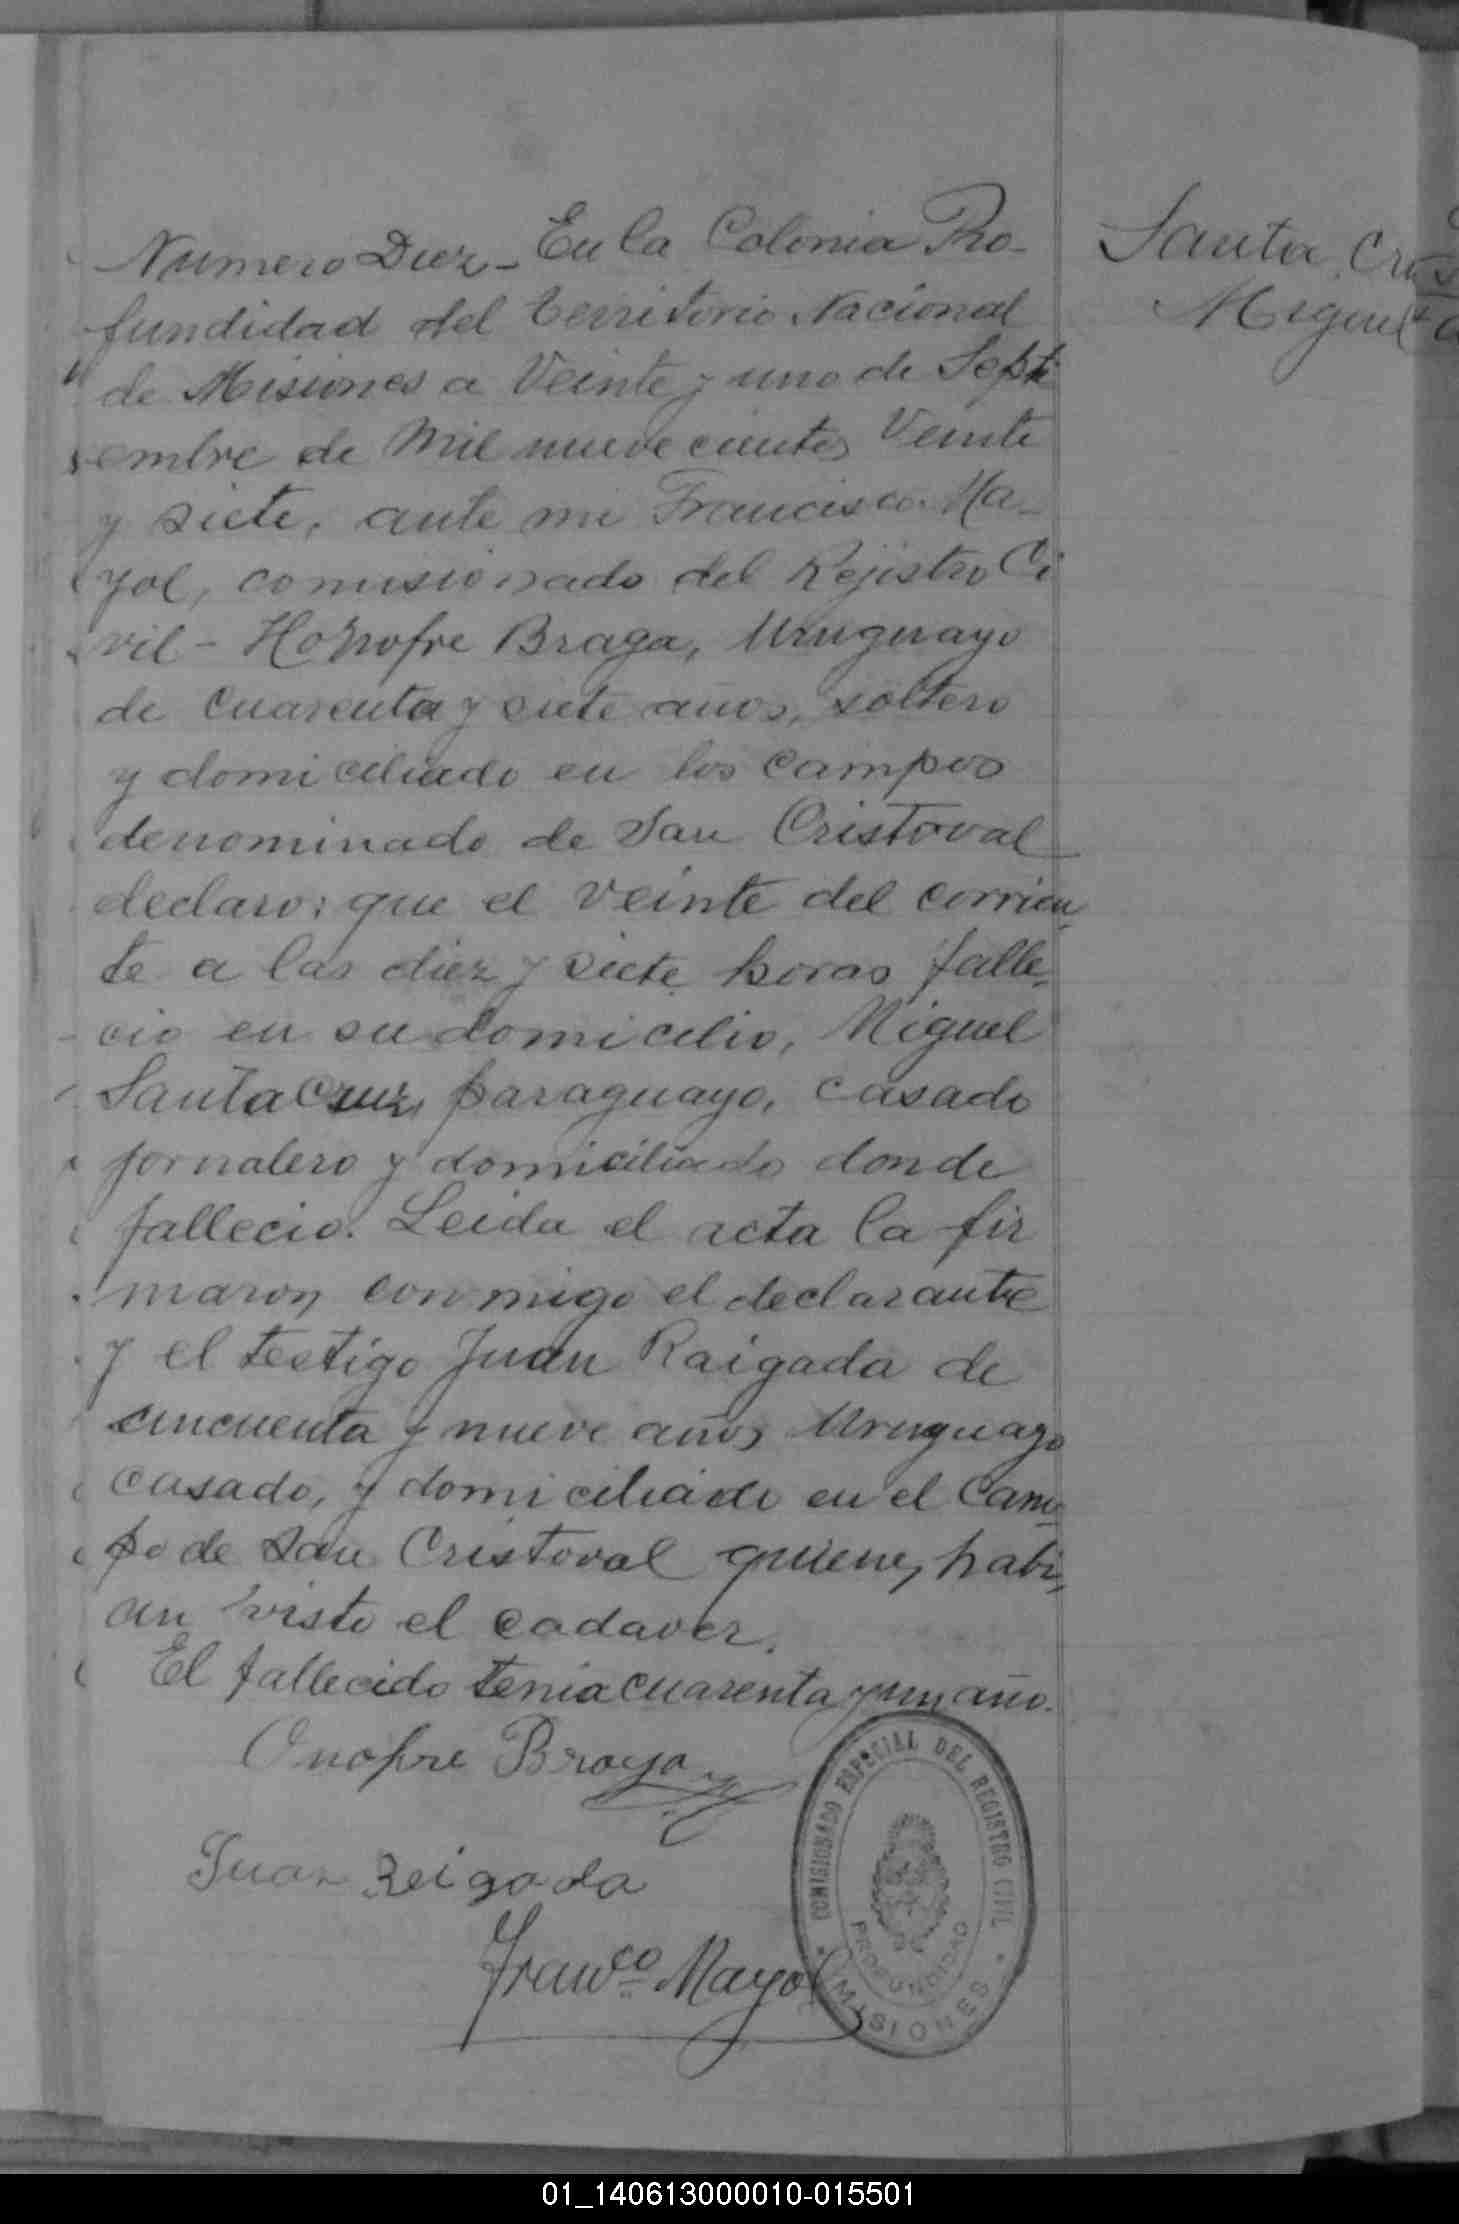 Numero Diez - En la Colonia Pro-
fundidad del territorio Nacional
de Misiones a Veinte y uno de Septi
embre de Mil nueve cientos Veinte
y siete, ante mi Francisco Ma-
yol, comisionado del Rejistro Ci
vil - Honofre Braga, Uruguayo
de cuarenta y siete años, soltero
y domiciliado en los campos
denominado de San Cristoval
declaro: que el veinte del corrien
te a las diez y siete horas falle-
cio en su domicilio, Miguel
Santa Cruz, paraguayo, casado
jornalero y domiciliado donde
fallecio. Leida el acta la fir
maron conmigo el declarante
y el testigo Juan Raigada de
cincuenta y nueve años Uruguayo
casado, y domiciliado en el Cam-
po de San Cristoval quienes habi-
an visto el cadaver.
El fallecido tenia cuarenta y un año.
Onofre Braga
Juan Reigada
Franco. Mayol
COMISIONADO ESPECIAL DEL REGISTRO CIVIL
PROFUNDIDAD
MISIONES
Santa Cruz
Miguel
01_140613000010-015501